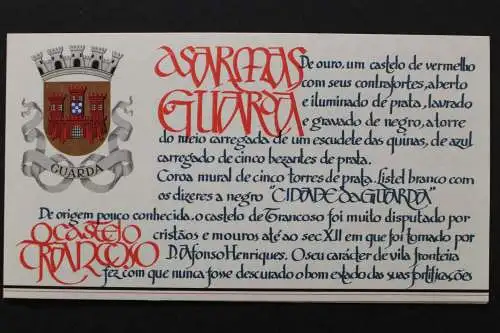 GUARDA
AS ARMAS
GUARDA
De ouro, um castelo de vermelho
com seus contrafortes, aberto
e iluminado de prata, lavrado
e gravado de negro, a torre
do meio carregada de um escudete das quinas, de azul
carregado de cinco bezantes de prata.
Coroa mural de cinco torres de prata. Listel branco com
os dizeres a negro "CIDADE da GUARDA"
De origem pouco conhecida, o castelo de Trancoso foi muito disputado por
O CASTELO
TRANCOSO
cristãos e mouros até ao sec XII em que foi tomado por
D. Afonso Henriques. O seu carácter de vila fronteira
fez com que nunca fosse descurado o bom estado das suas fortificações